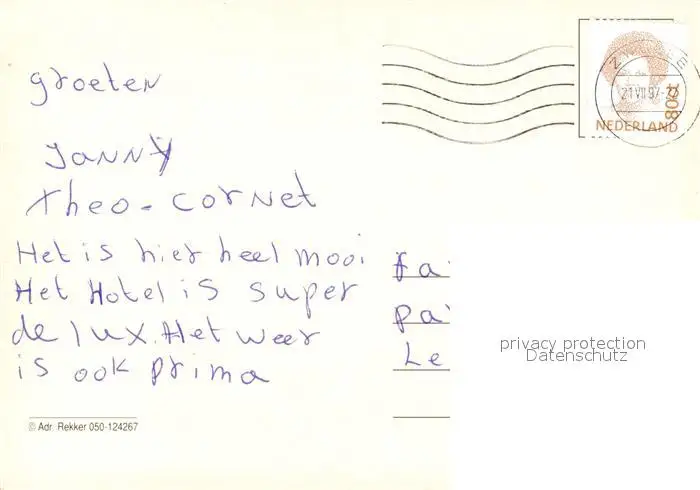 groeten
Janny
theo - cornet
Het is hier heel mooi
Het Hotel is super
de lux. Het weer
is ook prima
© Adr. Rekker 050-124267
80ct
NEDERLAND
21 VII 97
fa
pa
Le
privacy protection
Datenschutz